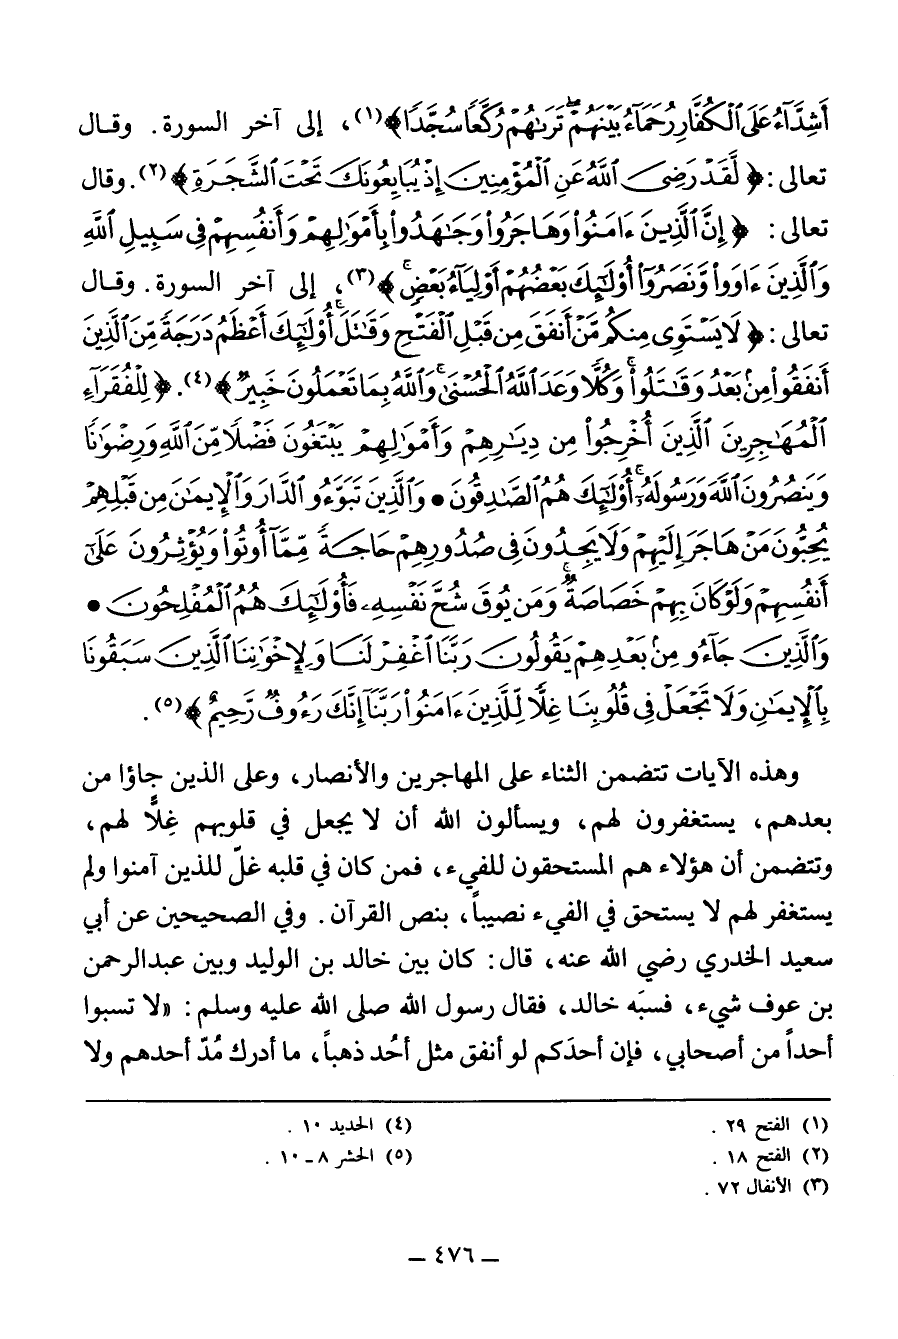 أَشِدَّآءُ عَلَى ٱلْكُفَّارِ رُحَمَآءُ بَيْنَهُمْ تَرَىٰهُمْ رُكَّعًا سُجَّدًا﴾(١)، إلى آخر السورة. وقال
تعالى: ﴿لَّقَدْ رَضِىَ ٱللَّهُ عَنِ ٱلْمُؤْمِنِينَ إِذْ يُبَايِعُونَكَ تَحْتَ ٱلشَّجَرَةِ﴾(٢). وقال
تعالى: ﴿إِنَّ ٱلَّذِينَ ءَامَنُوا۟ وَهَاجَرُوا۟ وَجَـٰهَدُوا۟ بِأَمْوَٰلِهِمْ وَأَنفُسِهِمْ فِى سَبِيلِ ٱللَّهِ
وَٱلَّذِينَ ءَاوَوا۟ وَّنَصَرُوٓا۟ أُو۟لَـٰٓئِكَ بَعْضُهُمْ أَوْلِيَآءُ بَعْضٍ﴾(٣)، إلى آخر السورة. وقال
تعالى: ﴿لَا يَسْتَوِى مِنكُم مَّنْ أَنفَقَ مِن قَبْلِ ٱلْفَتْحِ وَقَـٰتَلَ أُو۟لَـٰٓئِكَ أَعْظَمُ دَرَجَةً مِّنَ ٱلَّذِينَ
أَنفَقُوا۟ مِنۢ بَعْدُ وَقَـٰتَلُوا۟ وَكُلًّا وَعَدَ ٱللَّهُ ٱلْحُسْنَىٰ وَٱللَّهُ بِمَا تَعْمَلُونَ خَبِيرٌ﴾(٤). ﴿لِلْفُقَرَآءِ
ٱلْمُهَـٰجِرِينَ ٱلَّذِينَ أُخْرِجُوا۟ مِن دِيَـٰرِهِمْ وَأَمْوَٰلِهِمْ يَبْتَغُونَ فَضْلًا مِّنَ ٱللَّهِ وَرِضْوَٰنًا
وَيَنصُرُونَ ٱللَّهَ وَرَسُولَهُۥٓ أُو۟لَـٰٓئِكَ هُمُ ٱلصَّـٰدِقُونَ • وَٱلَّذِينَ تَبَوَّءُو ٱلدَّارَ وَٱلْإِيمَـٰنَ مِن قَبْلِهِمْ
يُحِبُّونَ مَنْ هَاجَرَ إِلَيْهِمْ وَلَا يَجِدُونَ فِى صُدُورِهِمْ حَاجَةً مِّمَّآ أُوتُوا۟ وَيُؤْثِرُونَ عَلَىٰٓ
أَنفُسِهِمْ وَلَوْ كَانَ بِهِمْ خَصَاصَةٌ وَمَن يُوقَ شُحَّ نَفْسِهِۦ فَأُو۟لَـٰٓئِكَ هُمُ ٱلْمُفْلِحُونَ •
وَٱلَّذِينَ جَآءُو مِنۢ بَعْدِهِمْ يَقُولُونَ رَبَّنَا ٱغْفِرْ لَنَا وَلِإِخْوَٰنِنَا ٱلَّذِينَ سَبَقُونَا
بِٱلْإِيمَـٰنِ وَلَا تَجْعَلْ فِى قُلُوبِنَا غِلًّا لِّلَّذِينَ ءَامَنُوا۟ رَبَّنَآ إِنَّكَ رَءُوفٌ رَّحِيمٌ﴾(٥).
وهذه الآيات تتضمن الثناء على المهاجرين والأنصار، وعلى الذين جاؤا من
بعدهم، يستغفرون لهم، ويسألون الله أن لا يجعل في قلوبهم غِلًّا لهم،
وتتضمن أن هؤلاء هم المستحقون للفيء، فمن كان في قلبه غلّ للذين آمنوا ولم
يستغفر لهم لا يستحق في الفيء نصيباً، بنص القرآن. وفي الصحيحين عن أبي
سعيد الخدري رضي الله عنه، قال: كان بين خالد بن الوليد وبين عبدالرحمن
بن عوف شيء، فسبَه خالد، فقال رسول الله صلى الله عليه وسلم: «لا تسبوا
أحداً من أصحابي، فإن أحدَكم لو أنفق مثل أحُد ذهباً، ما أدرك مُدّ أحدهم ولا
(١) الفتح ٢٩.
(٢) الفتح ١٨.
(٣) الأنفال ٧٢.
(٤) الحديد ١٠.
(٥) الحشر ٨ ـ ١٠.
ـ ٤٧٦ ـ